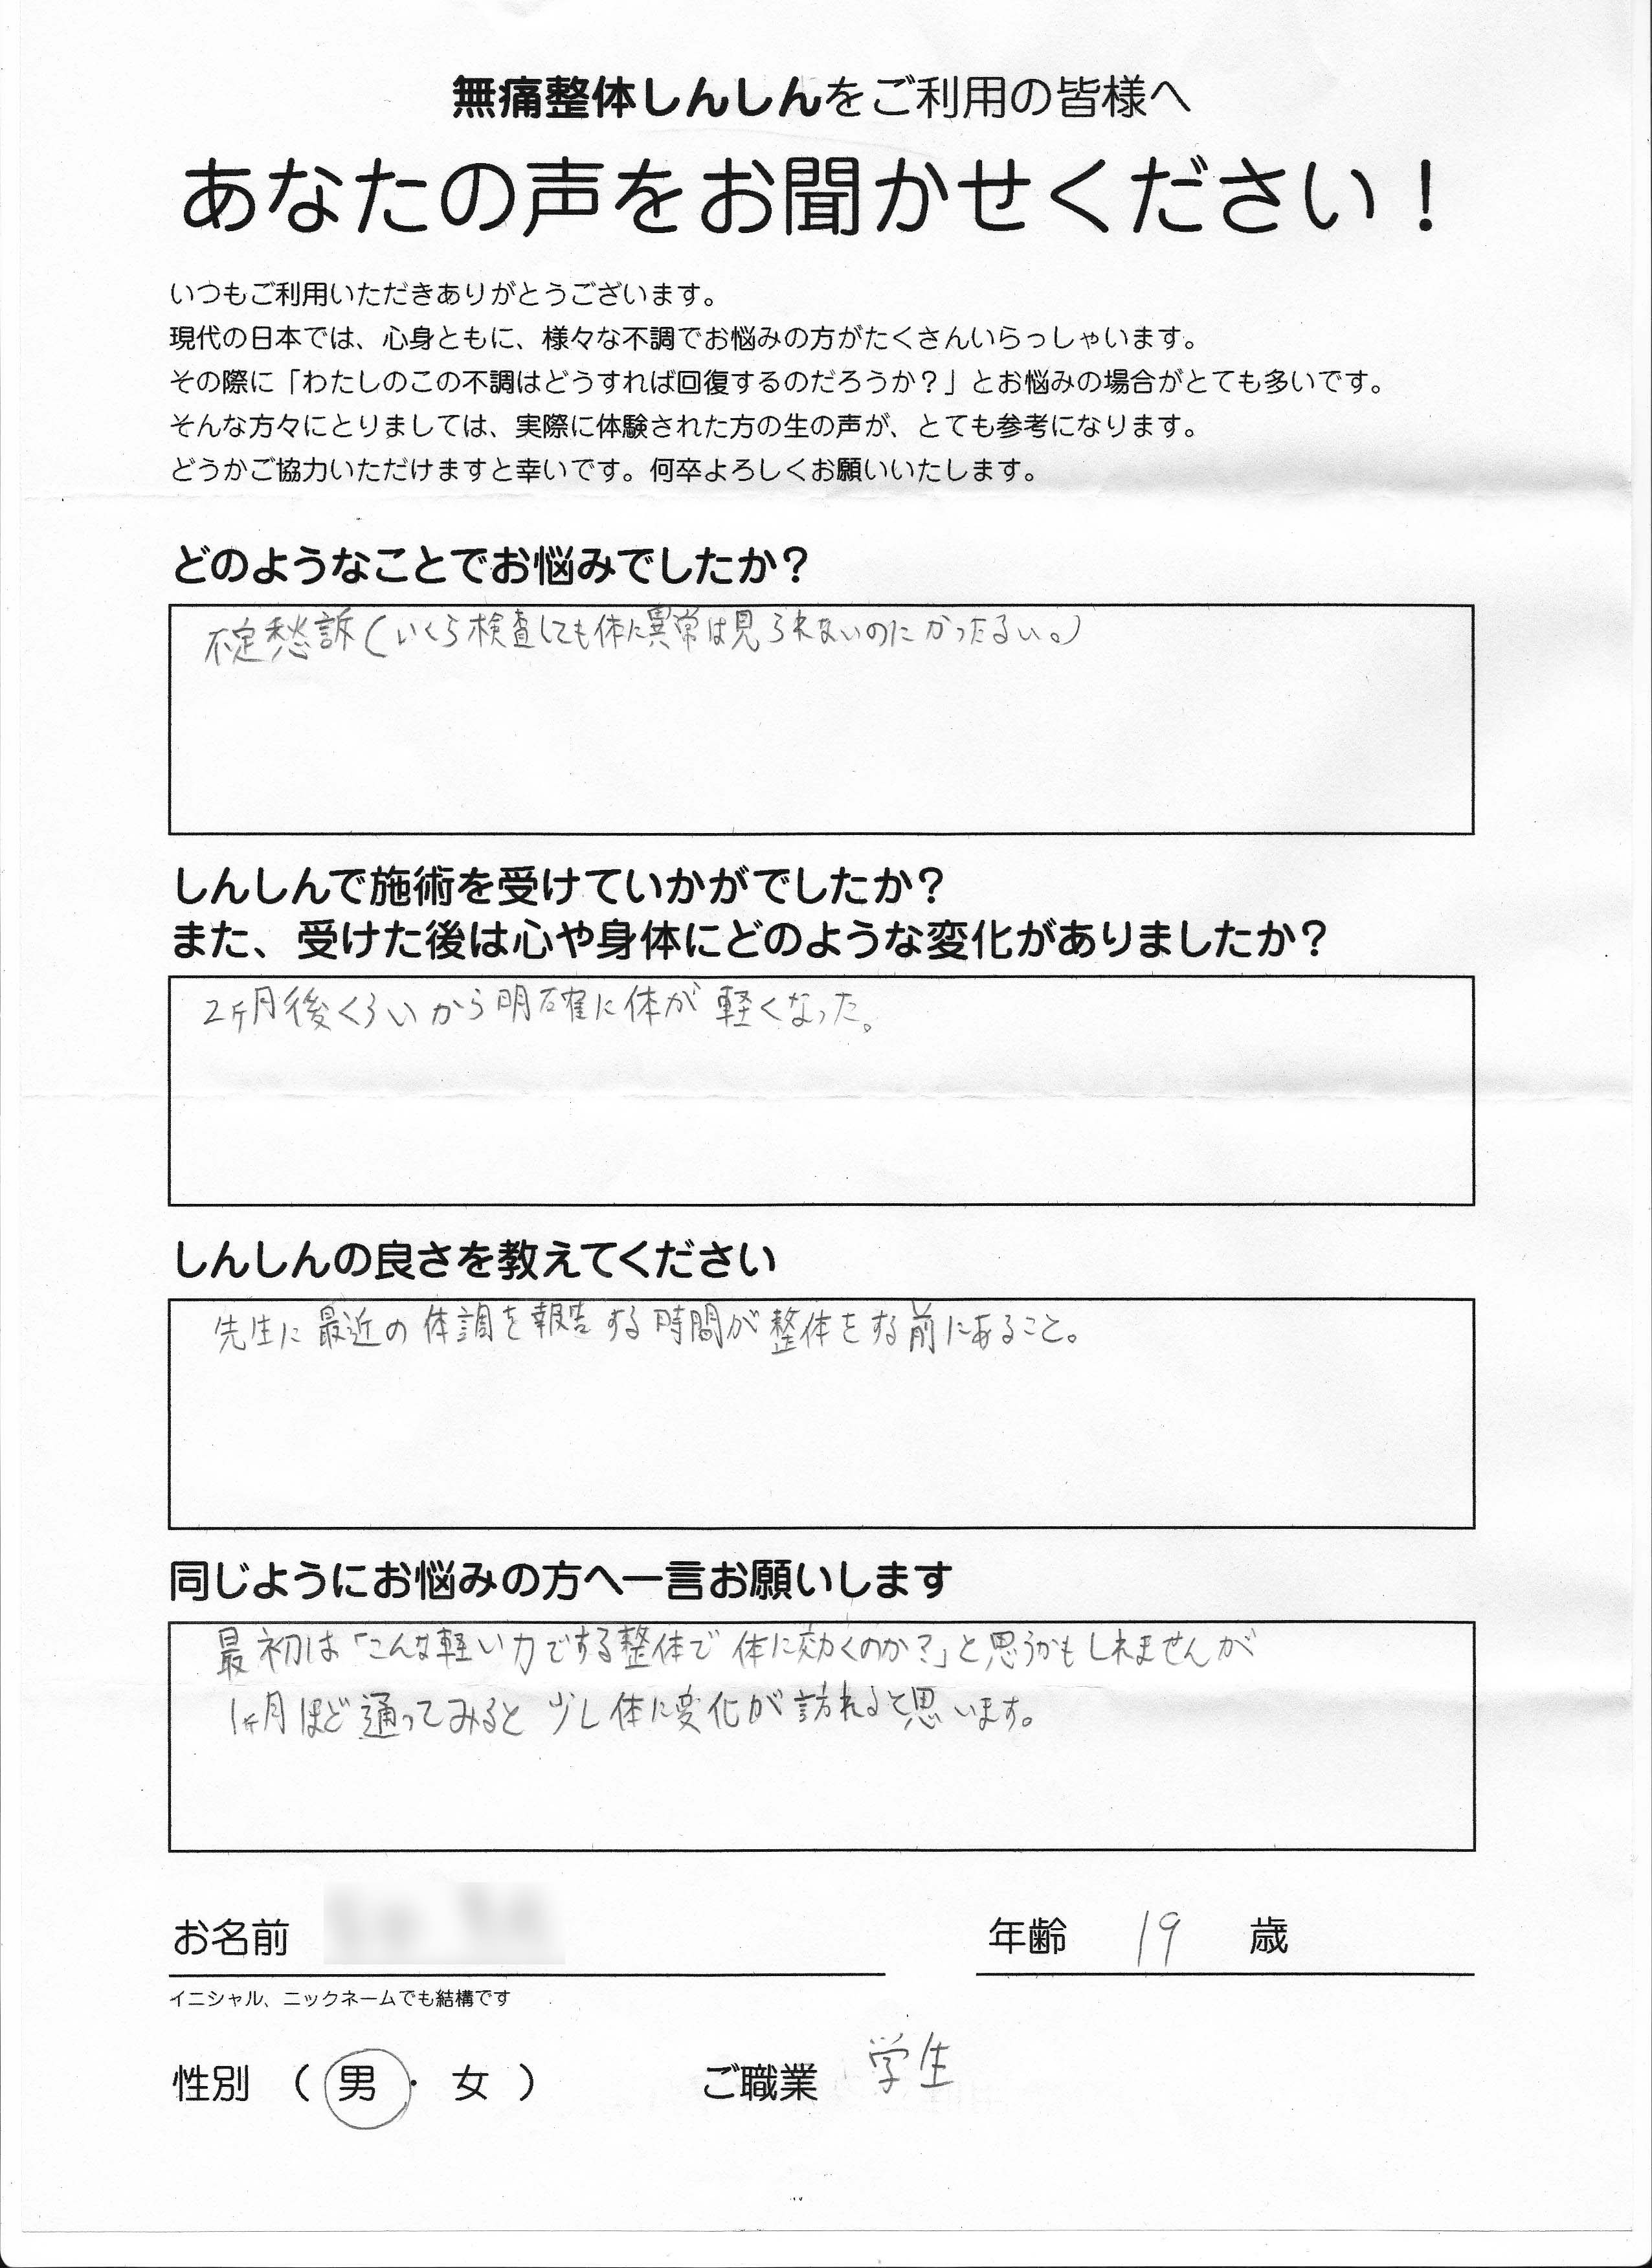 無痛整体しんしんをご利用の皆様へ
あなたの声をお聞かせください！
いつもご利用いただきありがとうございます。
現代の日本では、心身ともに、様々な不調でお悩みの方がたくさんいらっしゃいます。
その際に「わたしのこの不調はどうすれば回復するのだろうか？」とお悩みの場合がとても多いです。
そんな方々にとりましては、実際に体験された方の生の声が、とても参考になります。
どうかご協力いただけますと幸いです。何卒よろしくお願いいたします。
どのようなことでお悩みでしたか？
不定愁訴(いくら検査しても体に異常は見られないのにかったるい。)
しんしんで施術を受けていかがでしたか？
また、受けた後は心や身体にどのような変化がありましたか？
2ヶ月後くらいから明確に体が軽くなった。
しんしんの良さを教えてください
先生に最近の体調を報告する時間が整体をする前にあること。
同じようにお悩みの方へ一言お願いします
最初は「こんな軽い力でする整体で体に効くのか？」と思うかもしれませんが
1ヶ月ほど通ってみると少し体に変化が訪れると思います。
お名前 年齢 19 歳
イニシャル、ニックネームでも結構です
性別 （ 男 ・ 女 ） ご職業 学生